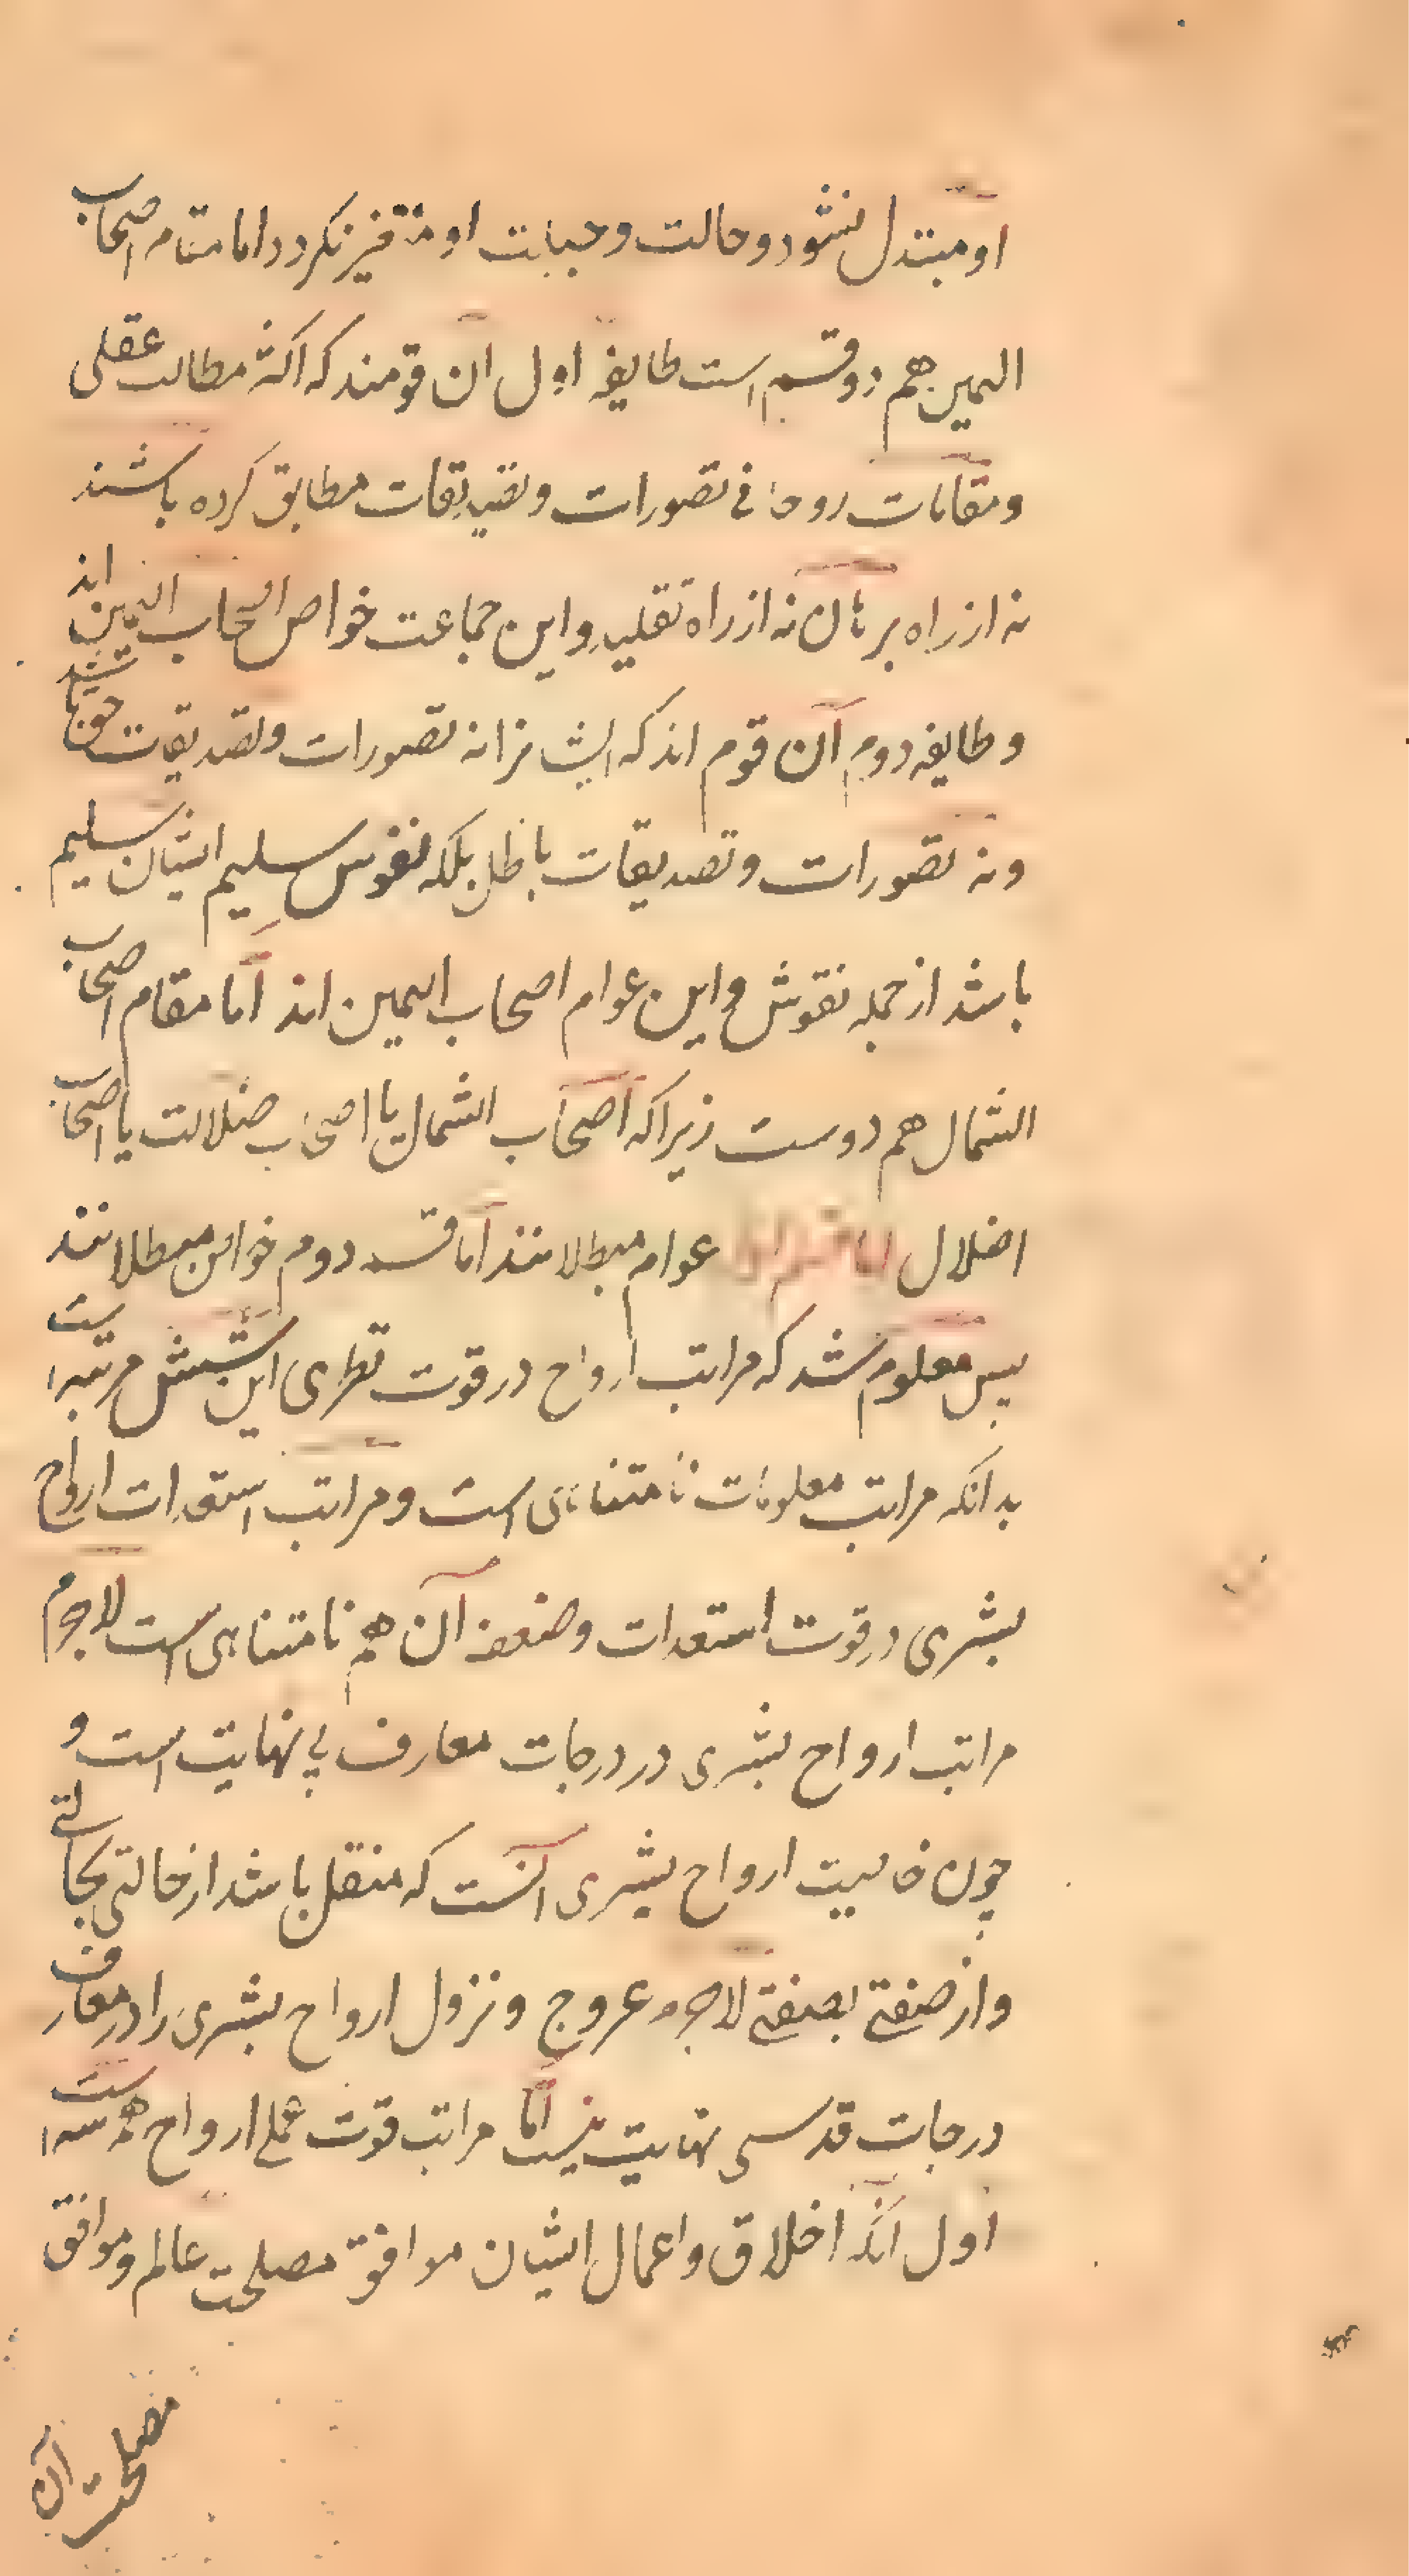 او مبتدل نشود و حالت و جبلت او متغیر نکردد اما مقام اصحاب
الیمین هم دو قسم است طایفه اول ان قومند که اکثر مطالب عقلی
و مقامات روحانی تصورات و تصدیقات مطابق کرده باشند
نه از راه برهان نه از راه تقلید و این جماعت خواص اصحاب الیمین اند
و طایفه دوم آن قوم اند که ایشانرا نه تصورات و تصدیقات حق باشد
و نه تصورات و تصدیقات باطل بلکه نفوس سلیم ایشان سلیم
باشد از جمله نقوش و این عوام اصحاب الیمین اند اما مقام اصحاب
الشمال هم دوست زیرا که اصحاب الشمال یا اصحاب ضلالت یا اصحاب
اضلال عوام مبطلانند اما قسم دوم خواص مبطلانند
پس معلوم شد که مراتب ارواح در قوت نظری این شش مرتبه است
بدانکه مراتب معلومات نامتناهی است و مراتب استعدات ارواح
بشری در قوت استعدات و ضعف آن هم نامتناهی است لاجرم
مراتب ارواح بشری در درجات معارف بی نهایت است و
چون خاصیت ارواح بشری آنست که منتقل باشد از حالتی بحالتی
و از صفتی بصفتی لاجرم عروج و نزول ارواح بشری را در معارف
درجات قدسی نهایت نیست اما مراتب قوت عملی ارواح هم سه است
اول آنکه اخلاق و اعمال ایشان موافق مصلحت عالم و موافق
مصلحت آن